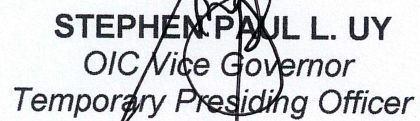 STEPHEN PAUL L. UY
OIC Vice Governor
Temporary Presiding Officer